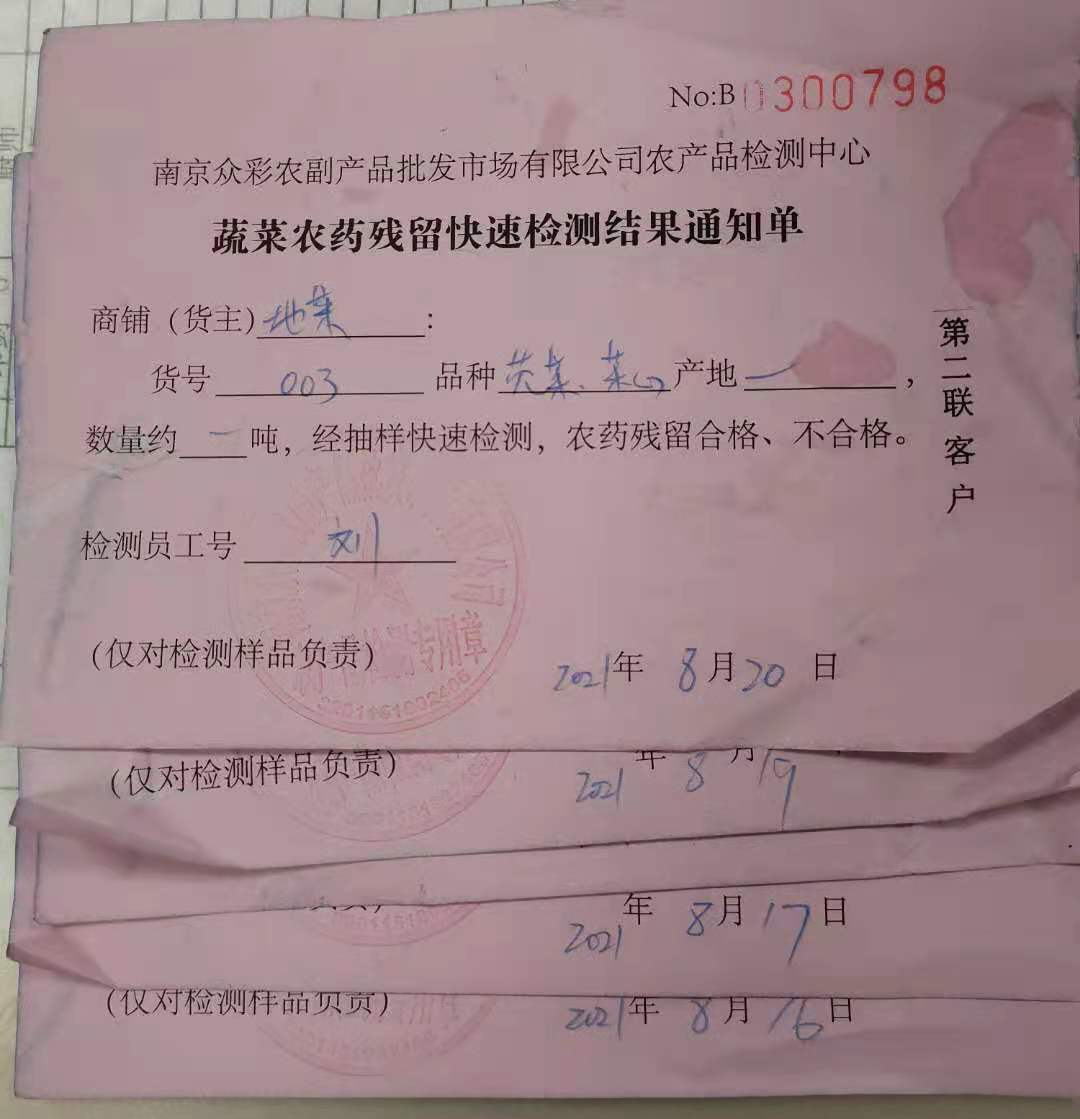 No:B 0300798
南京众彩农副产品批发市场有限公司农产品检测中心
蔬菜农药残留快速检测结果通知单
商铺(货主)地菜:
货号 003 品种 苋菜、菜心 产地 一,
数量约 一 吨,经抽样快速检测,农药残留合格、不合格。
检测员工号 刘
(仅对检测样品负责)
2021年 8月20日
第二联客户
检测专用章
(仅对检测样品负责)
2021年 8月19
2021年 8月17日
(仅对检测样品负责)
2021年 8月16日